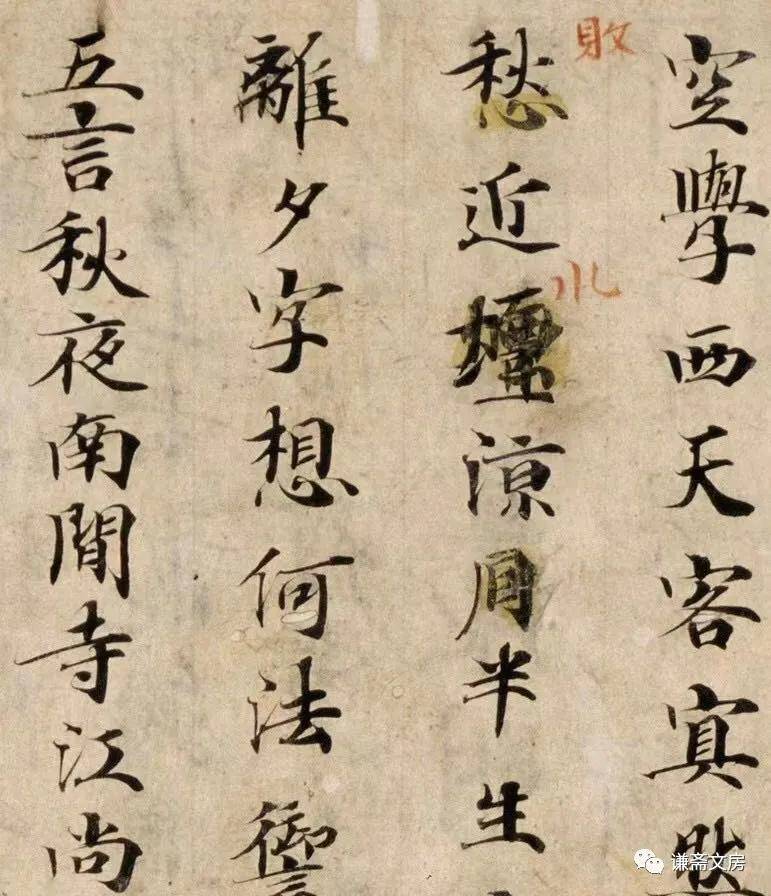 空學西天客
敗
愁近
水
涼月半生
離夕字想何法
五言秋夜南閒寺江尚
谦斋文房